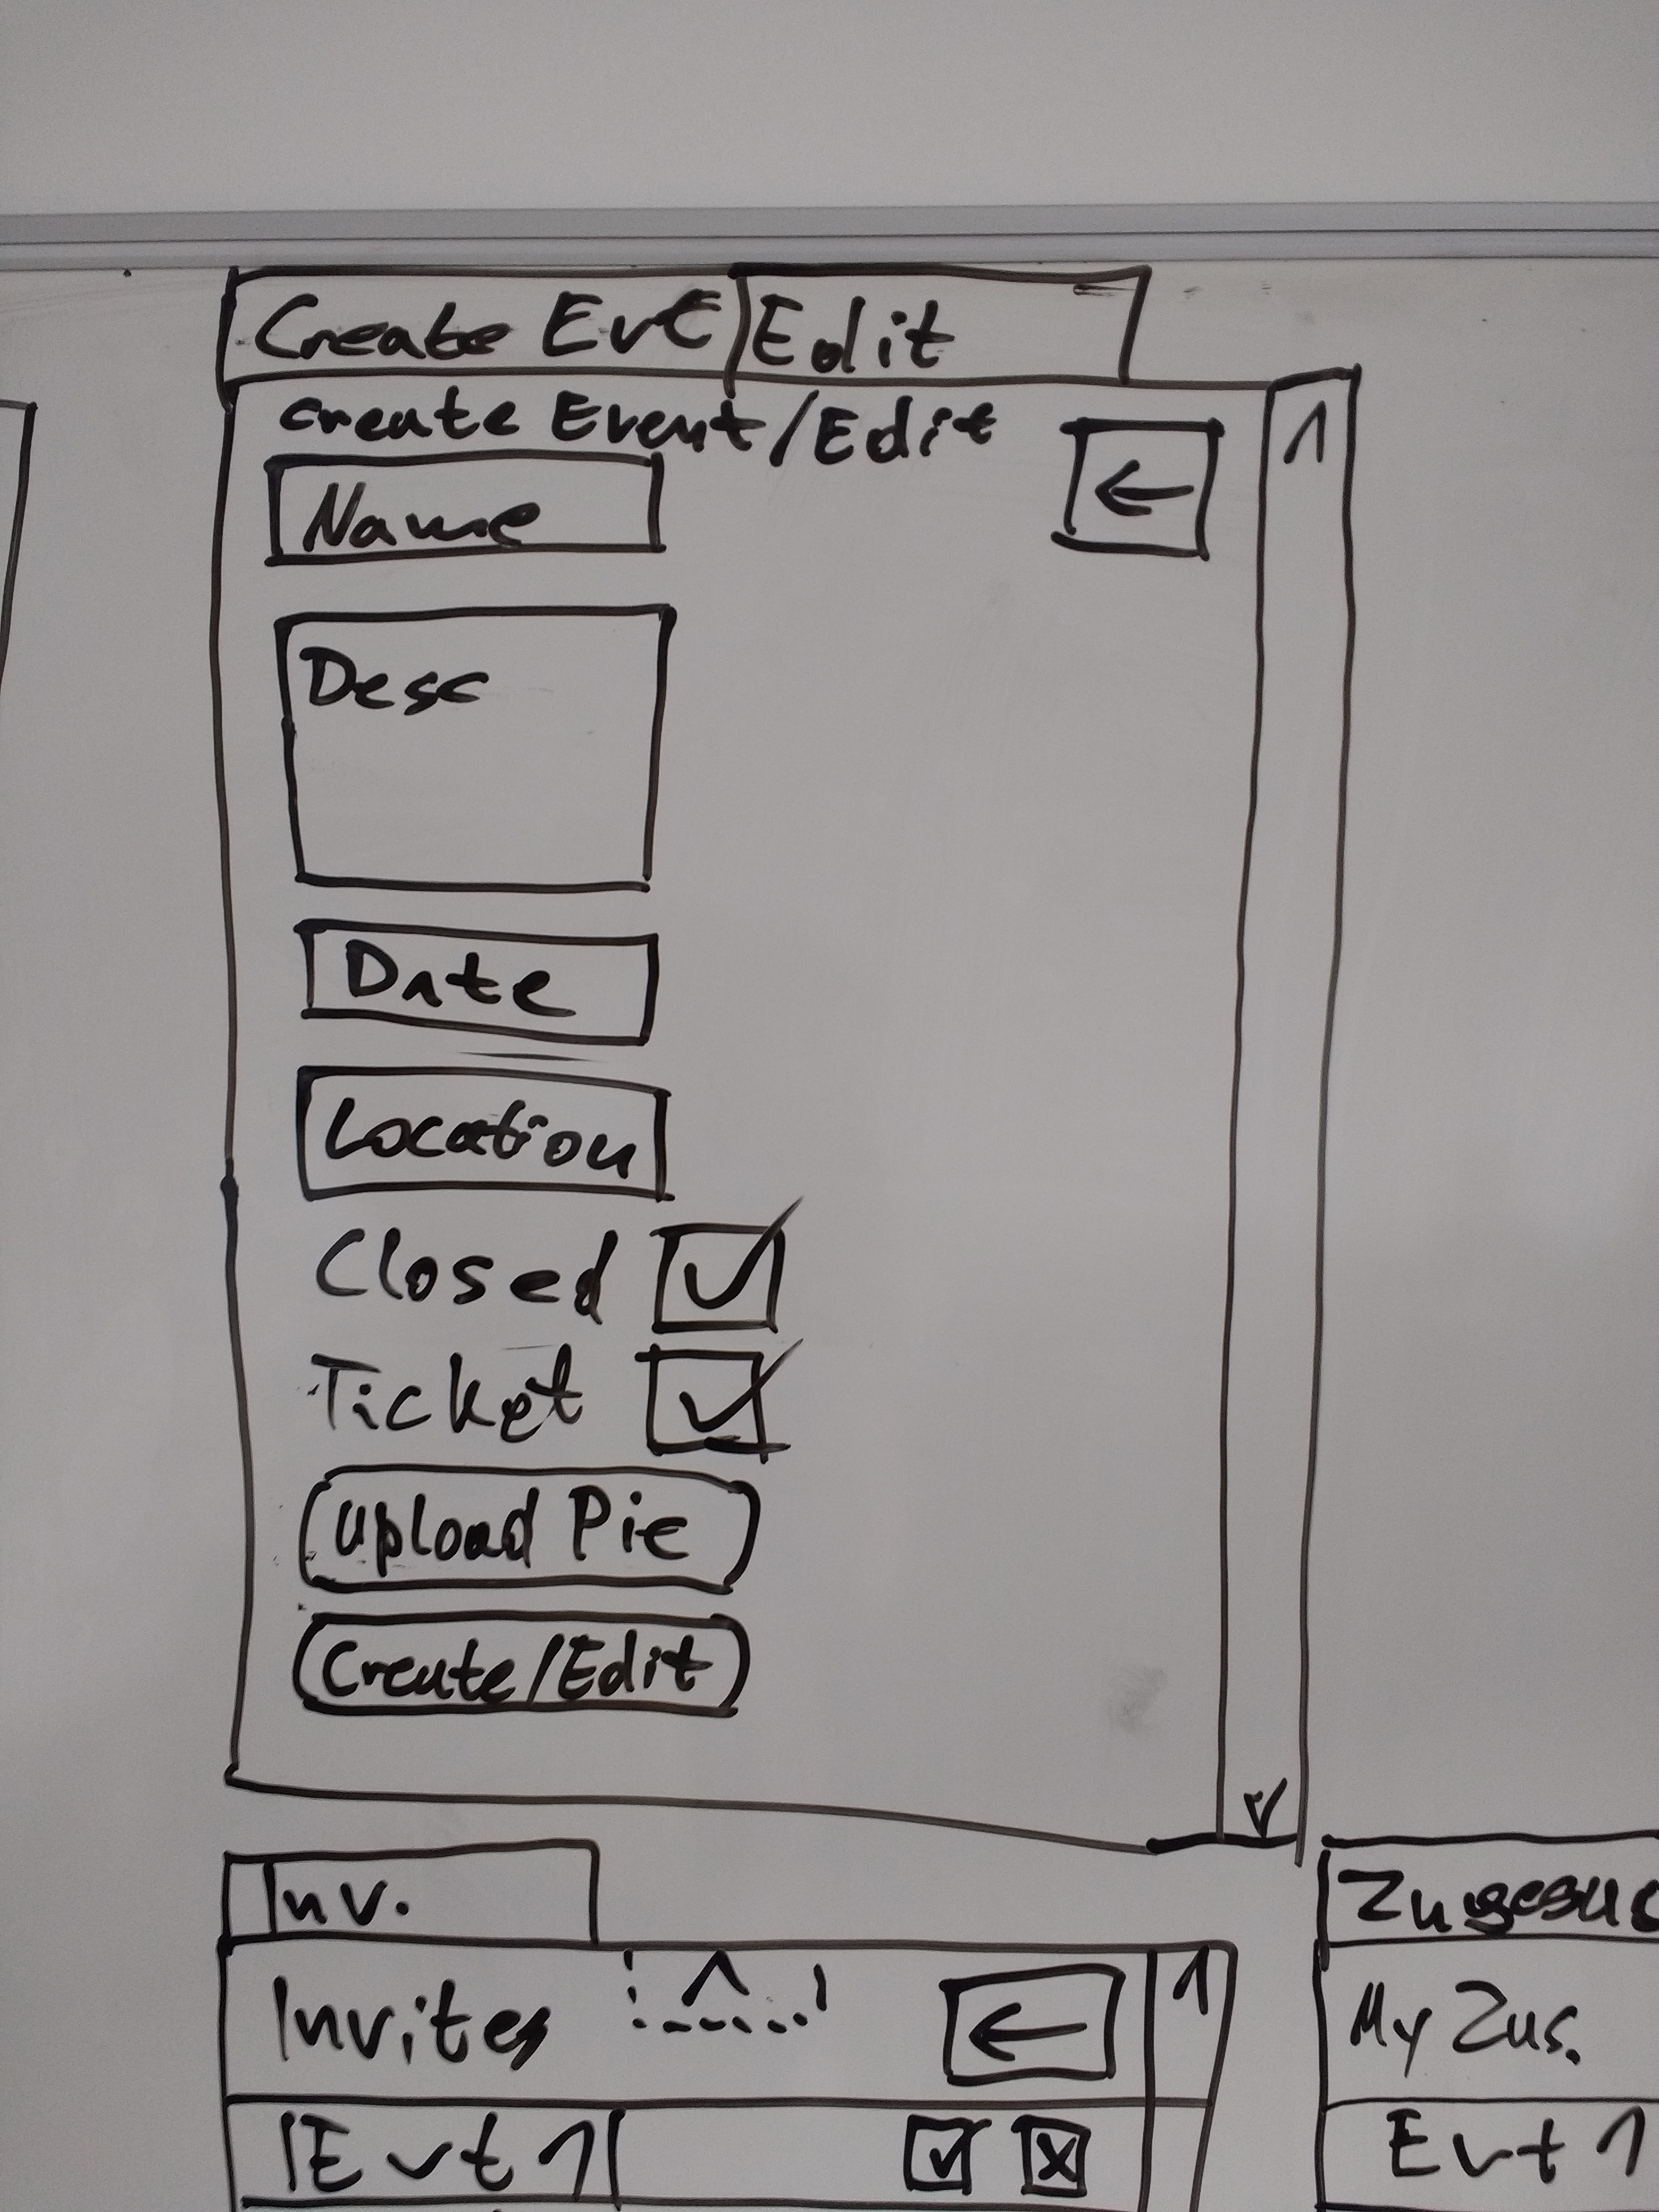 Create Evt Edit
Create Event/Edit
Name
Desc
Date
Location
Closed
Ticket
Upload Pic
Create/Edit
Inv.
Invites
Evt 1
My Zus.
Evt 1